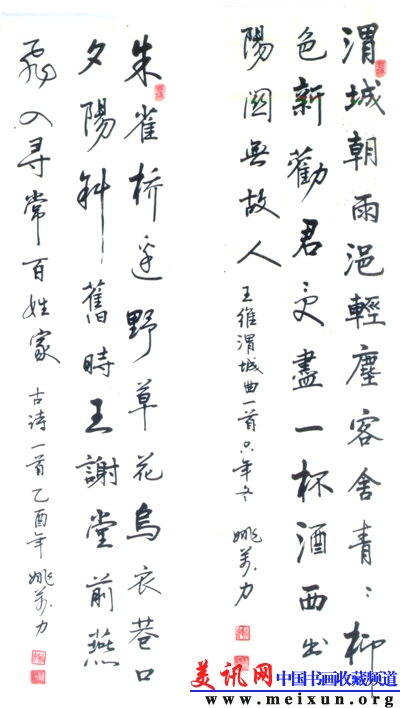 渭城朝雨浥輕塵客舍青〻柳
色新勸君更盡一杯酒西出
陽關無故人
王維渭城曲一首 年冬 姚萬力
朱雀桥邊野草花烏衣巷口
夕陽斜舊時王謝堂前燕
飛入寻常百姓家
古诗一首乙酉年姚萬力
美讯网 中国书画收藏频道
www.meixun.org